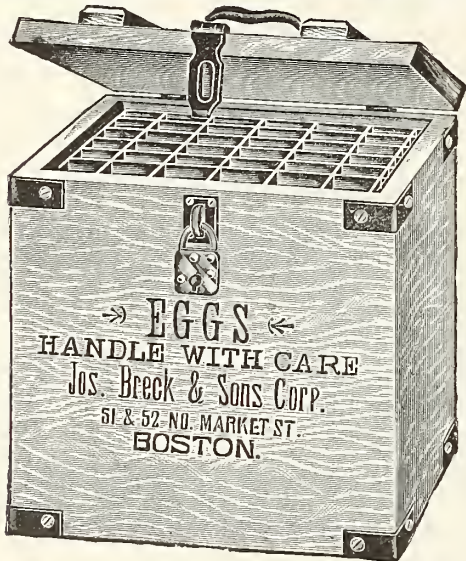 EGGS
HANDLE WITH CARE
Jos. Breck & Sons Corp.
51 & 52 NO. MARKET ST.
BOSTON.